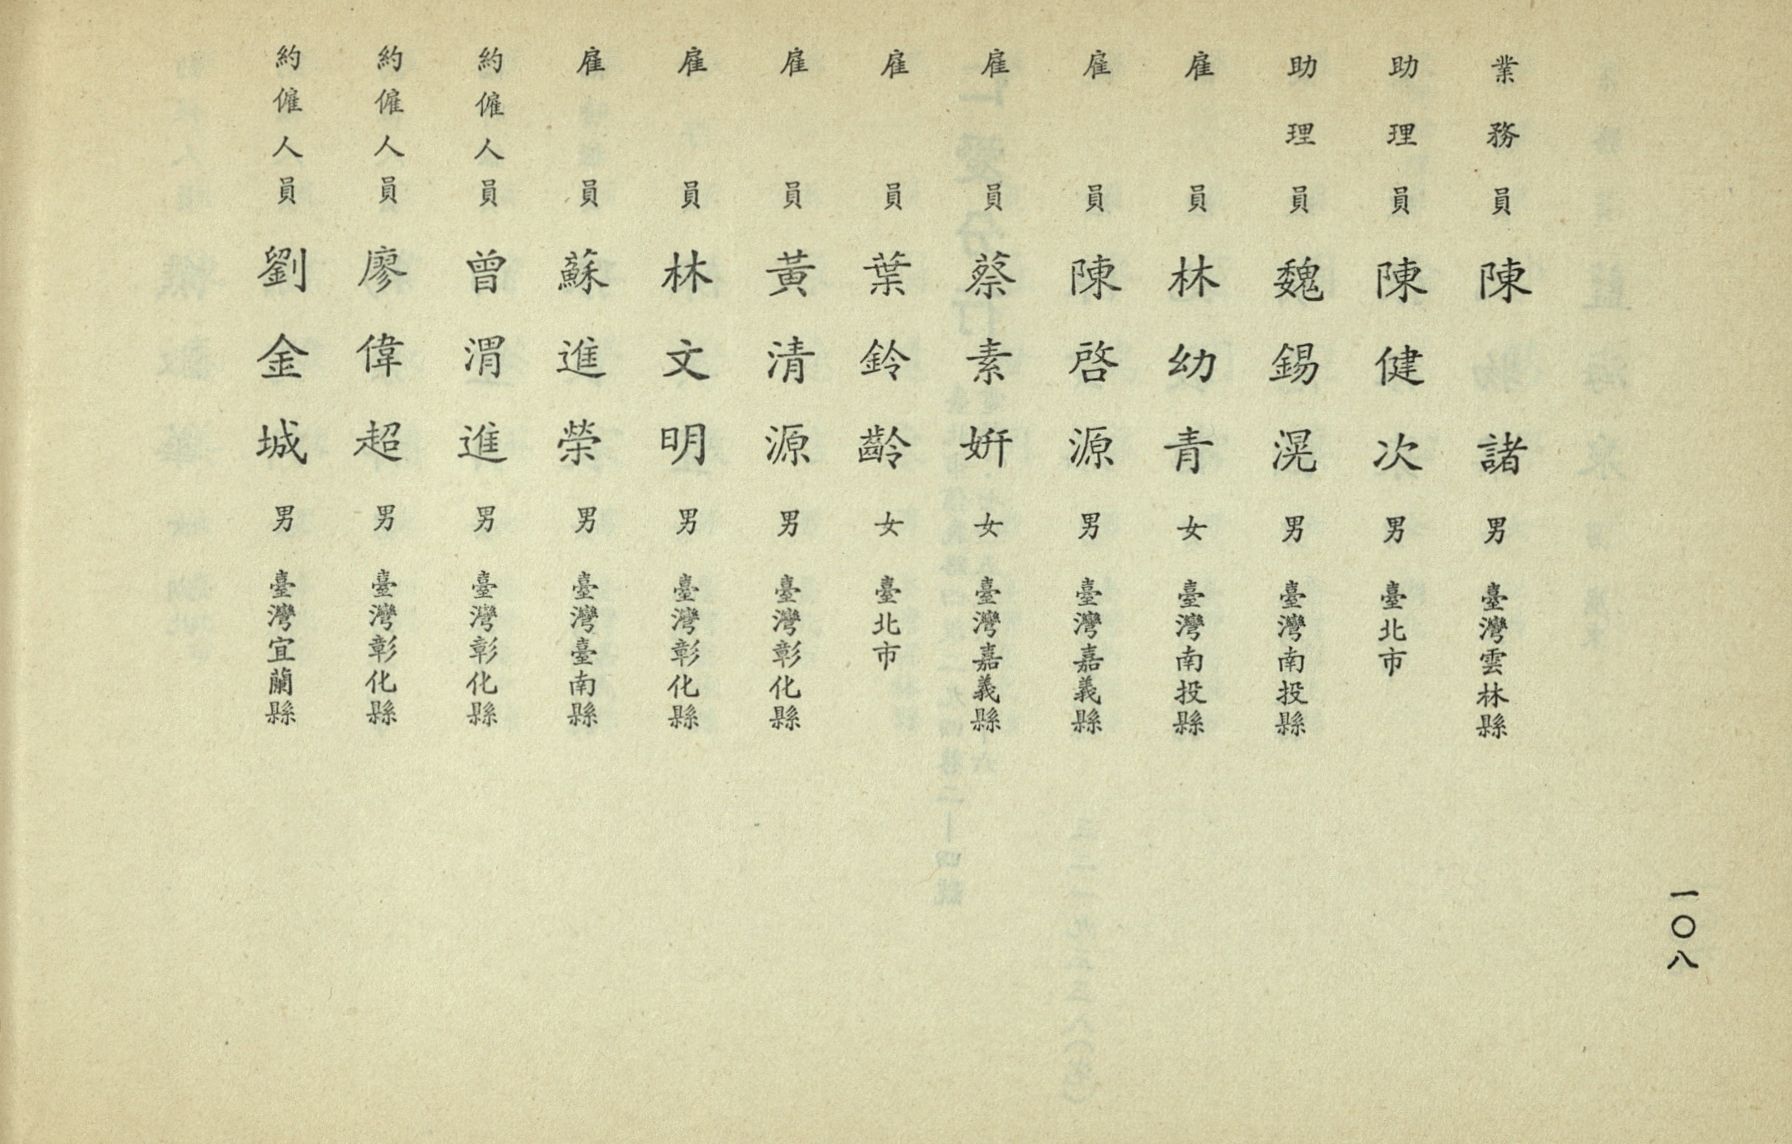 業務員陳諸男臺灣雲林縣
助理員陳健次男臺北市
助理員魏錫滉男臺灣南投縣
雇員林幼青女臺灣南投縣
雇員陳啓源男臺灣嘉義縣
雇員蔡素姸女臺灣嘉義縣
雇員葉鈴齡女臺北市
雇員黃清源男臺灣彰化縣
雇員林文明男臺灣彰化縣
雇員蘇進榮男臺灣臺南縣
約僱人員曾渭進男臺灣彰化縣
約僱人員廖偉超男臺灣彰化縣
約僱人員劉金城男臺灣宜蘭縣
一〇八